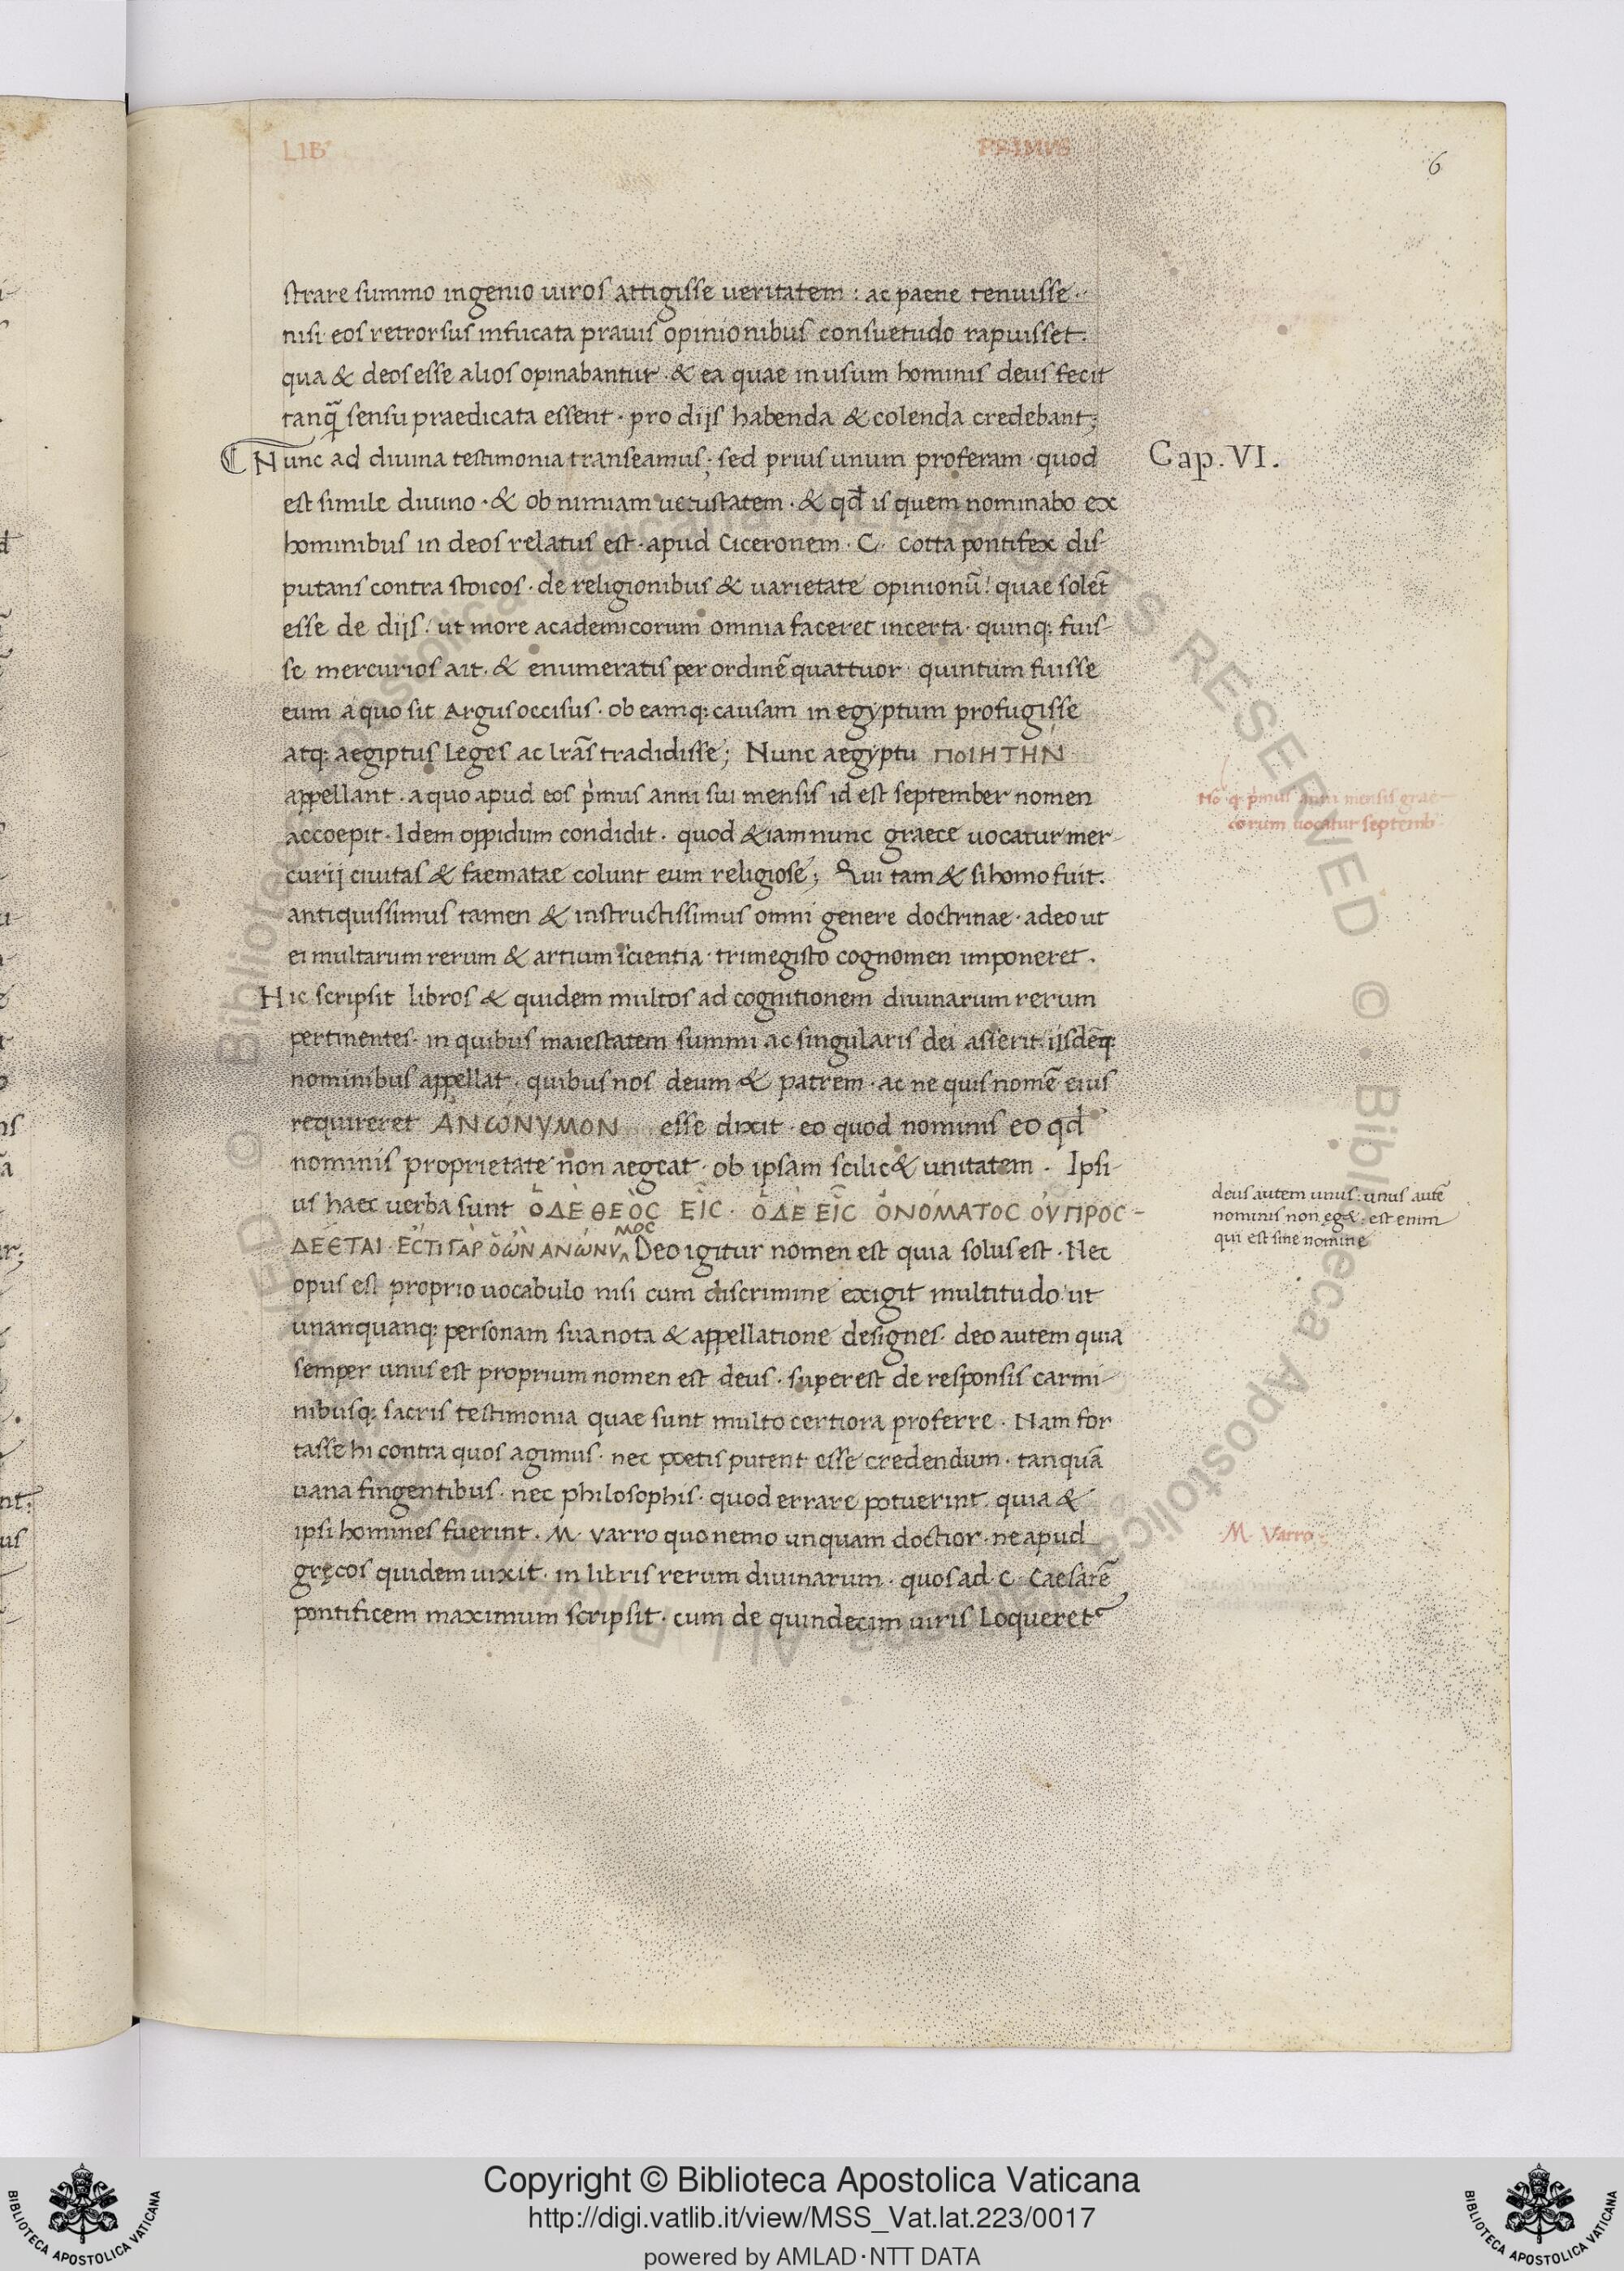 LIB' PRIMVS
6
strare summo ingenio uiros attigisse ueritatem : ac paene tenuisse ·
nisi eos retrorsus infucata prauis opinionibus consuetudo rapuisset ·
qua & deos esse alios opinabantur · & ea quae in usum hominis deus fecit
tanq̃ sensu praedicata essent · pro dijs habenda & colenda credebant;
Nunc ad diuina testimonia transeamus; sed prius unum proferam · quod
Cap. VI.
est simile diuino · & ob nimiam uetustatem · & qđ is quem nominabo ex
hominibus in deos relatus est · apud Ciceronem · C · Cotta pontifex dis-
putans contra stoicos · de religionibus & uarietate opinionũ! quae solẽt
esse de dijs! ut more academicorum omnia faceret incerta · quinq: fuis-
se mercurios ait · & enumeratis per ordinẽ quattuor · quintum fuisse
eum a quo sit Argus occisus · ob eamq: causam in egyptum profugisse
atq: aegiptus leges ac lrãs tradidisse; Nunc aegyptu ΠΟΙΗΤΗΝ
appellant · a quo apud eos p̍mus anni sui mensis id est september nomen
accoepit · Idem oppidum condidit · quod & iam nunc graece uocatur mer-
curij ciuitas & faematae colunt eum religiose; Qui tam & si homo fuit.
antiquissimus tamen & instructissimus omni genere doctrinae · adeo ut
ei multarum rerum & artium scientia · trimegisto cognomen imponeret .
Hic scripsit libros & quidem multos ad cognitionem diuinarum rerum
pertinentes · in quibus maiestatem summi ac singularis dei asserit · ijsdẽq:
nominibus appellat · quibus nos deum & patrem · ac ne quis nomẽ eius
requireret ἈΝΩΝΥΜΟΝ esse dixit · eo quod nominis eo qđ
nominis proprietate non aegeat · ob ipsam scilic& unitatem . Ipsi-
us haec verba sunt ὉΔΈ ΘΕῸC ΕἿC · ὉΔῈ ΕἿC ὈΝΌΜΑΤΟC ΟΥ̓ ΠΡΟC-
ΔΈΕΤΑΙ · ἘCΤΙ ΓᾺΡ ὉὬΝ ΑΝΏΝΥΜΟC Deo igitur nomen est quia solus est · Nec
opus est proprio uocabulo nisi cum discrimine exigit multitudo ut
unanquanq: personam sua nota & appellatione designes · deo autem quia
semper unus est proprium nomen est deus · superest de responsis carmi-
nibusq: sacris testimonia quae sunt multo certiora proferre · Nam for
tasse hi contra quos agimus · nec poetis putent esse credendum · tanquã
uana fingentibus · nec philosophis · quod errare potuerint · quia &
ipsi homines fuerint . M Varro quo nemo unquam doctior · ne apud
gręcos quidem uixit · in libris rerum diuinarum · quos ad C · Caesarẽ
pontificem maximum scripsit · cum de quindecim uiris Loqueret
p̍mus anni mensis grae-
corum uocatur septemb
deus autem unus : unus autẽ
nominis non eg& · est enim
qui est sine nomine
M Varro
© Biblioteca Apostolica Vaticana ALL RIGHTS RESERVED
Copyright © Biblioteca Apostolica Vaticana
http://digi.vatlib.it/view/MSS_Vat.lat.223/0017
powered by AMLAD·NTT DATA
BIBLIOTECA APOSTOLICA VATICANA
BIBLIOTECA APOSTOLICA VATICANA